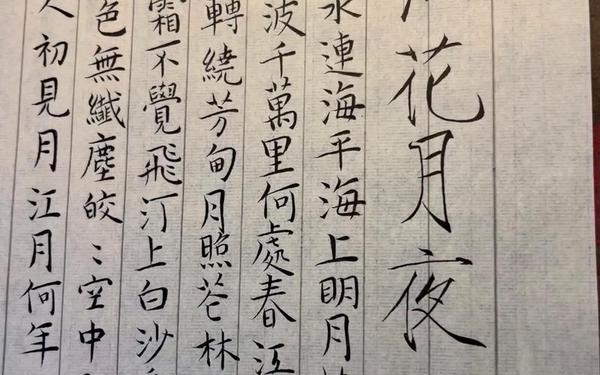 花月夜
水連海平海上明月
波千萬里何處春江
轉繞芳甸月照芲林
霜不覺飛汀上白沙
色無纖塵皎〻空中
人初見月江月何年